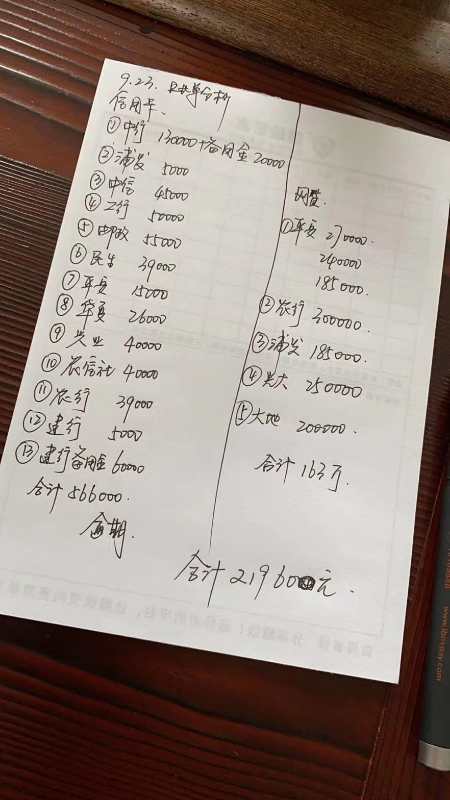 9.23. 财单分析
信用卡、
①中行 130000+备用金20000
②浦发 5000
③中信 45000
④工行 50000
⑤邮政 55000
⑥民生 39000
⑦平安 15000
⑧华夏 26000
⑨兴业 40000
⑩农信社 40000
⑪农行 39000
⑫建行 5000
⑬建行备用金 60000
合计 566000.
网贷.
①平安 270000.
240000
185000.
②农行 300000.
③浦发 185000.
④光大 250000
⑤大地 200000.
合计 163万.
合计 219600元.